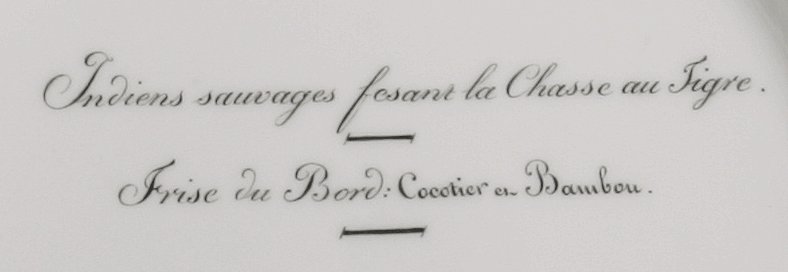 Indiens sauvages fesant la Chasse au Tigre.
Frise du Bord: Cocotier en Bambou.